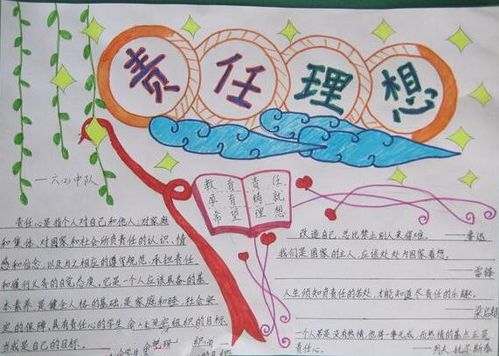 责任理想
一六(2)中队
教育责任
单肩铸就
希望理想
责任心是指个人对自己和他人,对家庭
和集体,对国家和社会所负责任的认识、情
感和信念,以及与之相应的遵守规范、承担责任
和履行义务的自觉态度,它是一个人应该具备的基
本素养,是健全人格的基础,是家庭和睦,社会安
定的保障。具有责任心的学生会 组织的目标
当成是自己的目标。
改造自己,总比禁止别人来得难。——鲁迅
我们是国家的主人,应该处处为国家着想。
——雷锋
人生须知负责任的苦处,才能知道尽责任的乐趣。
——梁启超
一个人若是没有热情,他将一事无成,而热情的基点正是
责任心。——列夫·托尔斯泰